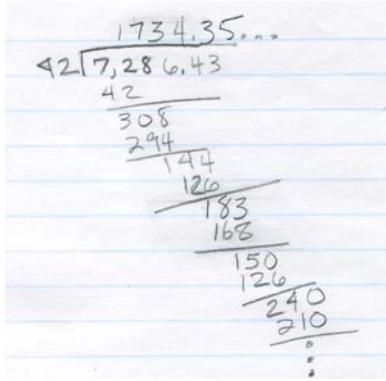 1734.35...
42⟌7,286.43
42
308
294
144
126
183
168
150
126
240
210
⋮